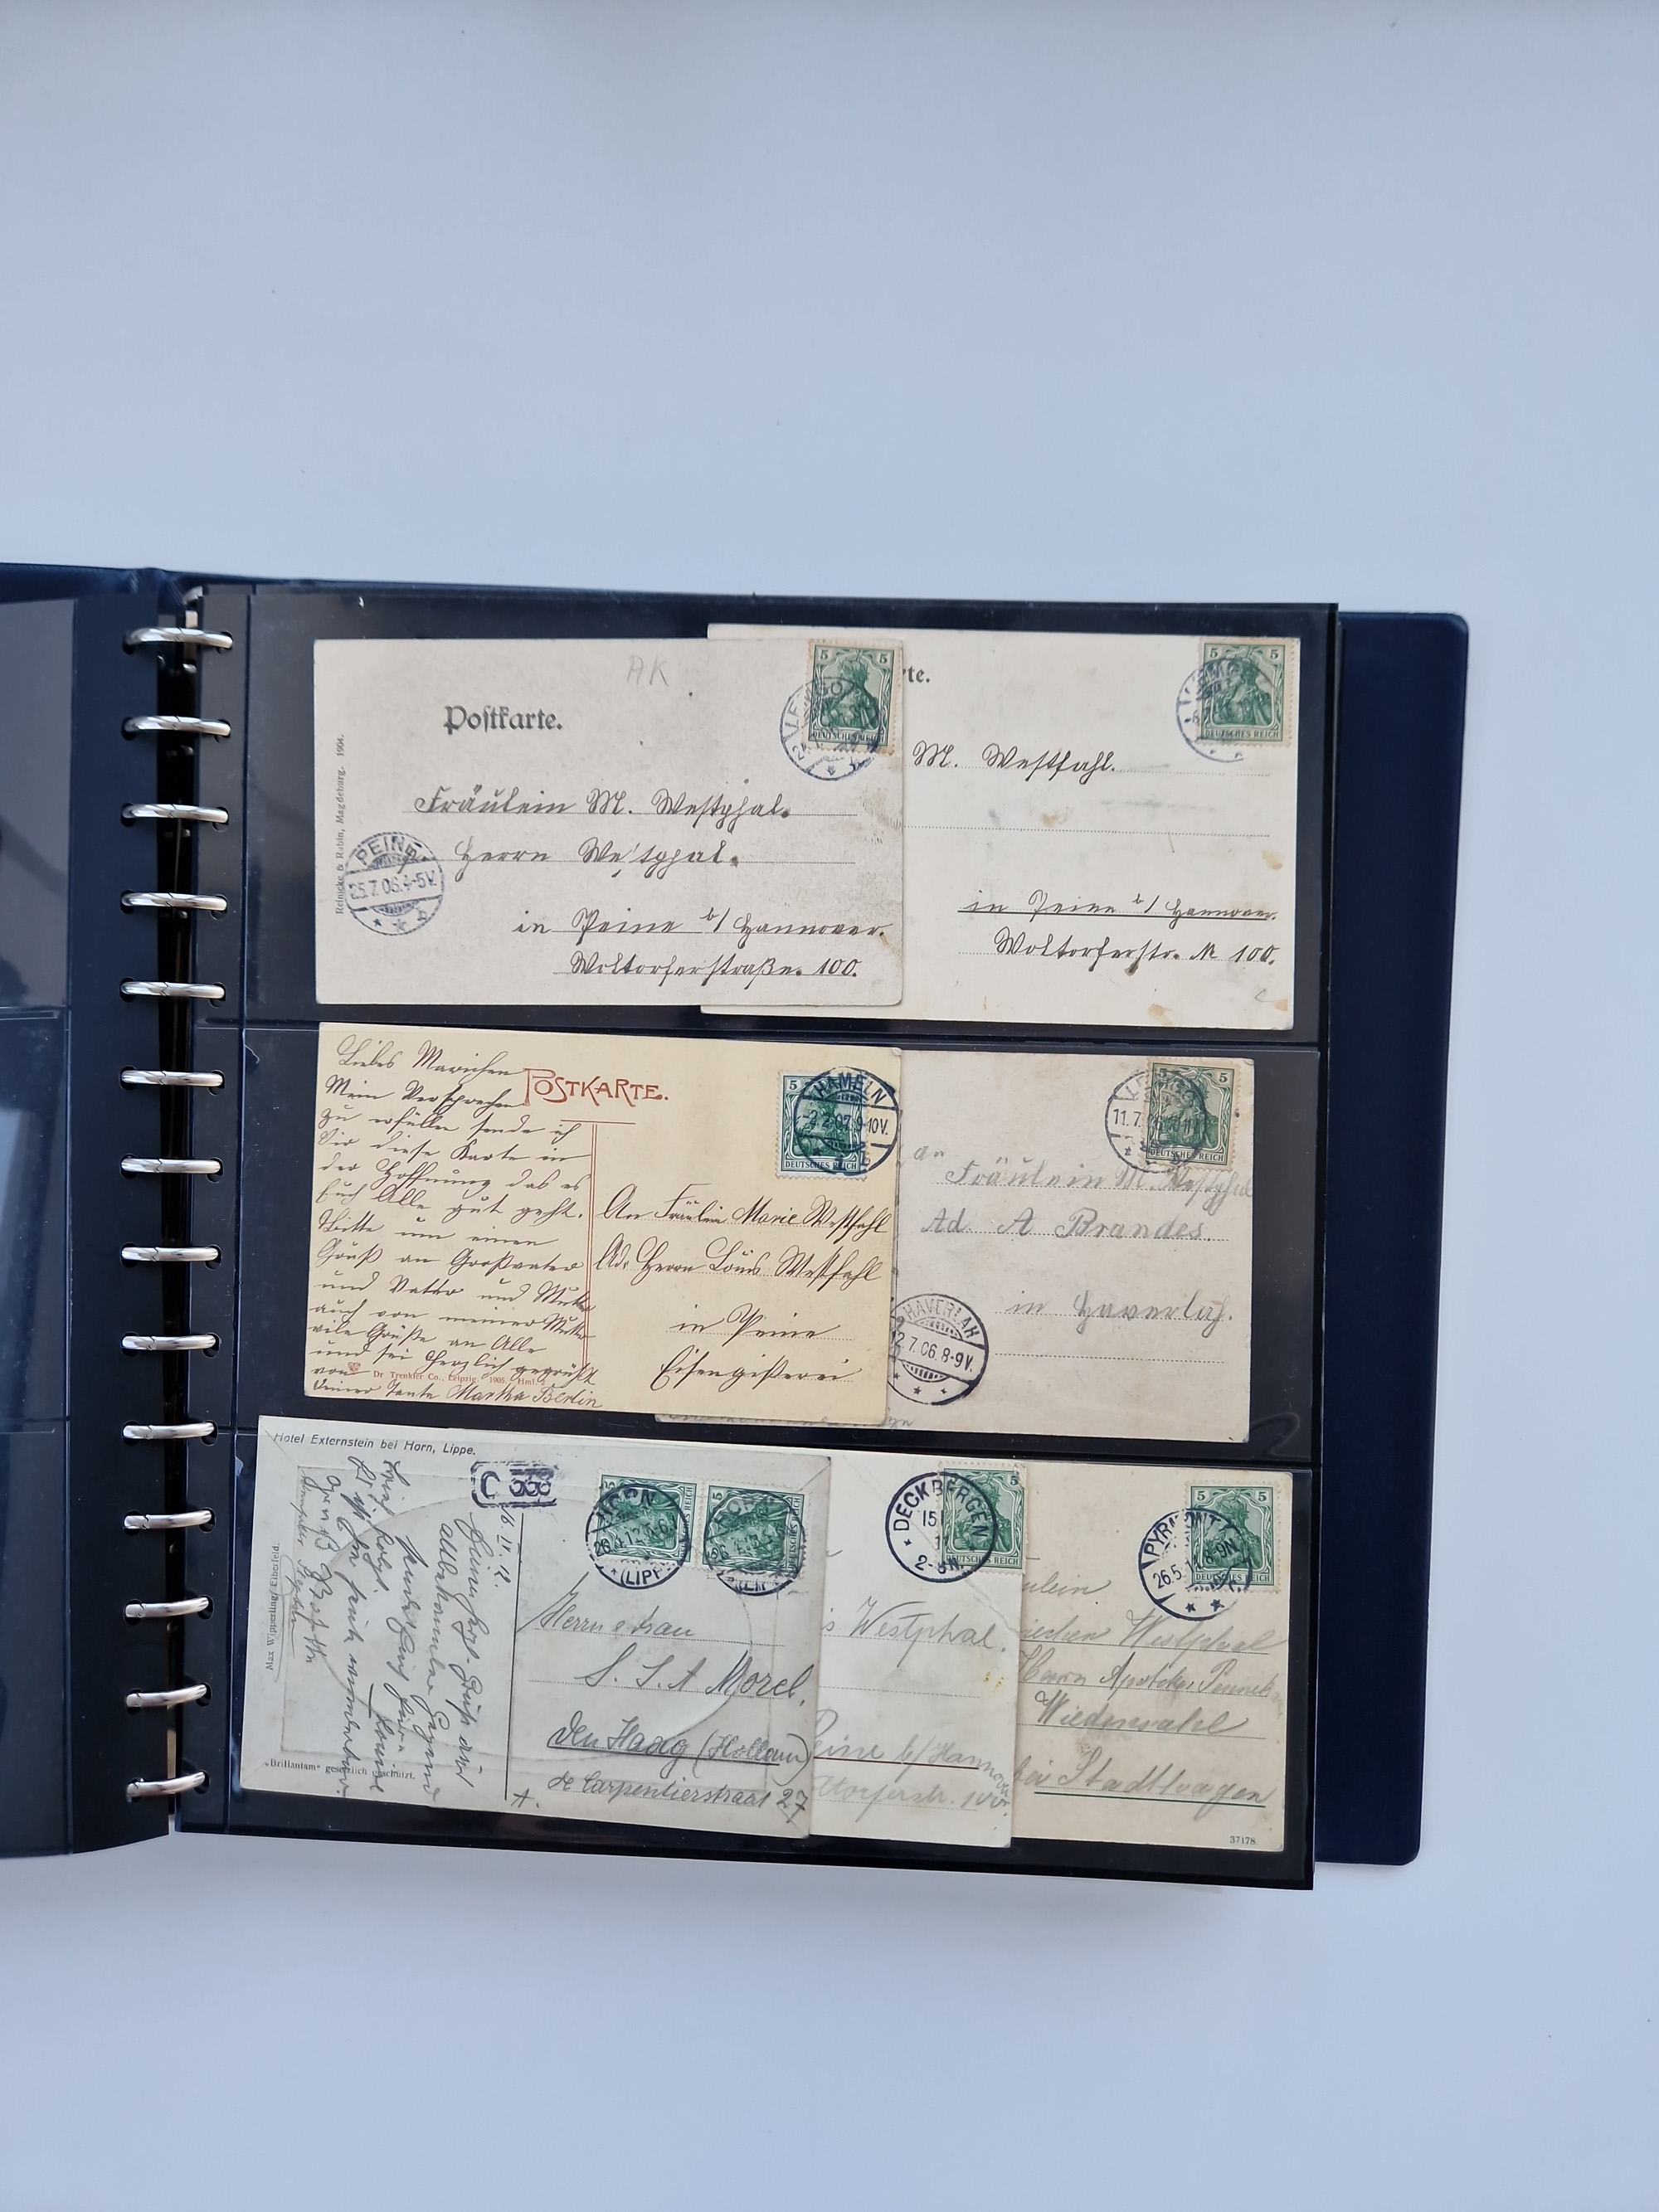 AK
Postkarte.
5 5
DEUTSCHES REICH
LEMGO
Fräulein M. Westphal.
Herrn Westphal.
in Peine b/ Hannover.
Woltorferstraße. 100.
PEINE
25.7.06.4-5V.
b
Reinicke & Rubin, Magdeburg. 1904.
rte.
5 5
DEUTSCHES REICH
M. Westfahl.
in Peine b/ Hannover.
Woltorferstr. N 100.
Liebes Mariechen
Mein Versprechen
zu erfüllen sende ich
Dir diese Karte in
der Hoffnung das es
Euch Alle gut geht.
Bitte um einen
Gruß an Großvater
und Vatter und Mutter
auch von meiner Mutter
viele Grüße an Alle
und sei herzlich gegrüßt
von
Deiner Tante Martha Berlin
Dr Trenkler Co., Leipzig. 1905.
POSTKARTE.
5
DEUTSCHES REICH
HAMELN
2.2.07.9-10V.
An Fräulein Marie Westfahl
Ad. Herrn Louis Westfahl
in Peine
Eisengißerei
5 5
DEUTSCHES REICH
11.7.
an
Fräulein M. Westphal
Ad. A Brandes.
in Haverlah.
HAVERLAH
12.7.06.8-9V.
Hotel Externstein bei Horn, Lippe.
Max Wipperling, Elberfeld.
„Brillantam“ gesetzlich geschützt.
HORN
26.4.12
(LIPPE)
Herrn & Frau
S. S. A Morel,
Den Haag (Holland)
de Carpentierstraat 27
A.
5
DEUTSCHES REICH
DECKBERGEN
15
2-3N.
s Westphal.
Peine b/ Hannover.
ltorferstr. 100.
5 5
DEUTSCHES REICH
PYRMONT
26.5.
8-9N
ulein
iechen Westphal
Herrn Apoteker
Wiedensahl
bei Stadthagen
37178